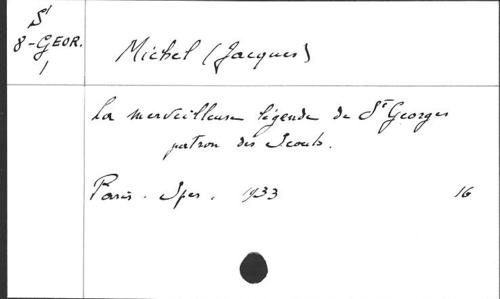 St
8-GEOR.
1
Michel (Jacques)
La merveilleuse légende de St Georges
patron des Scouts.
Paris. Spes. 1933 16